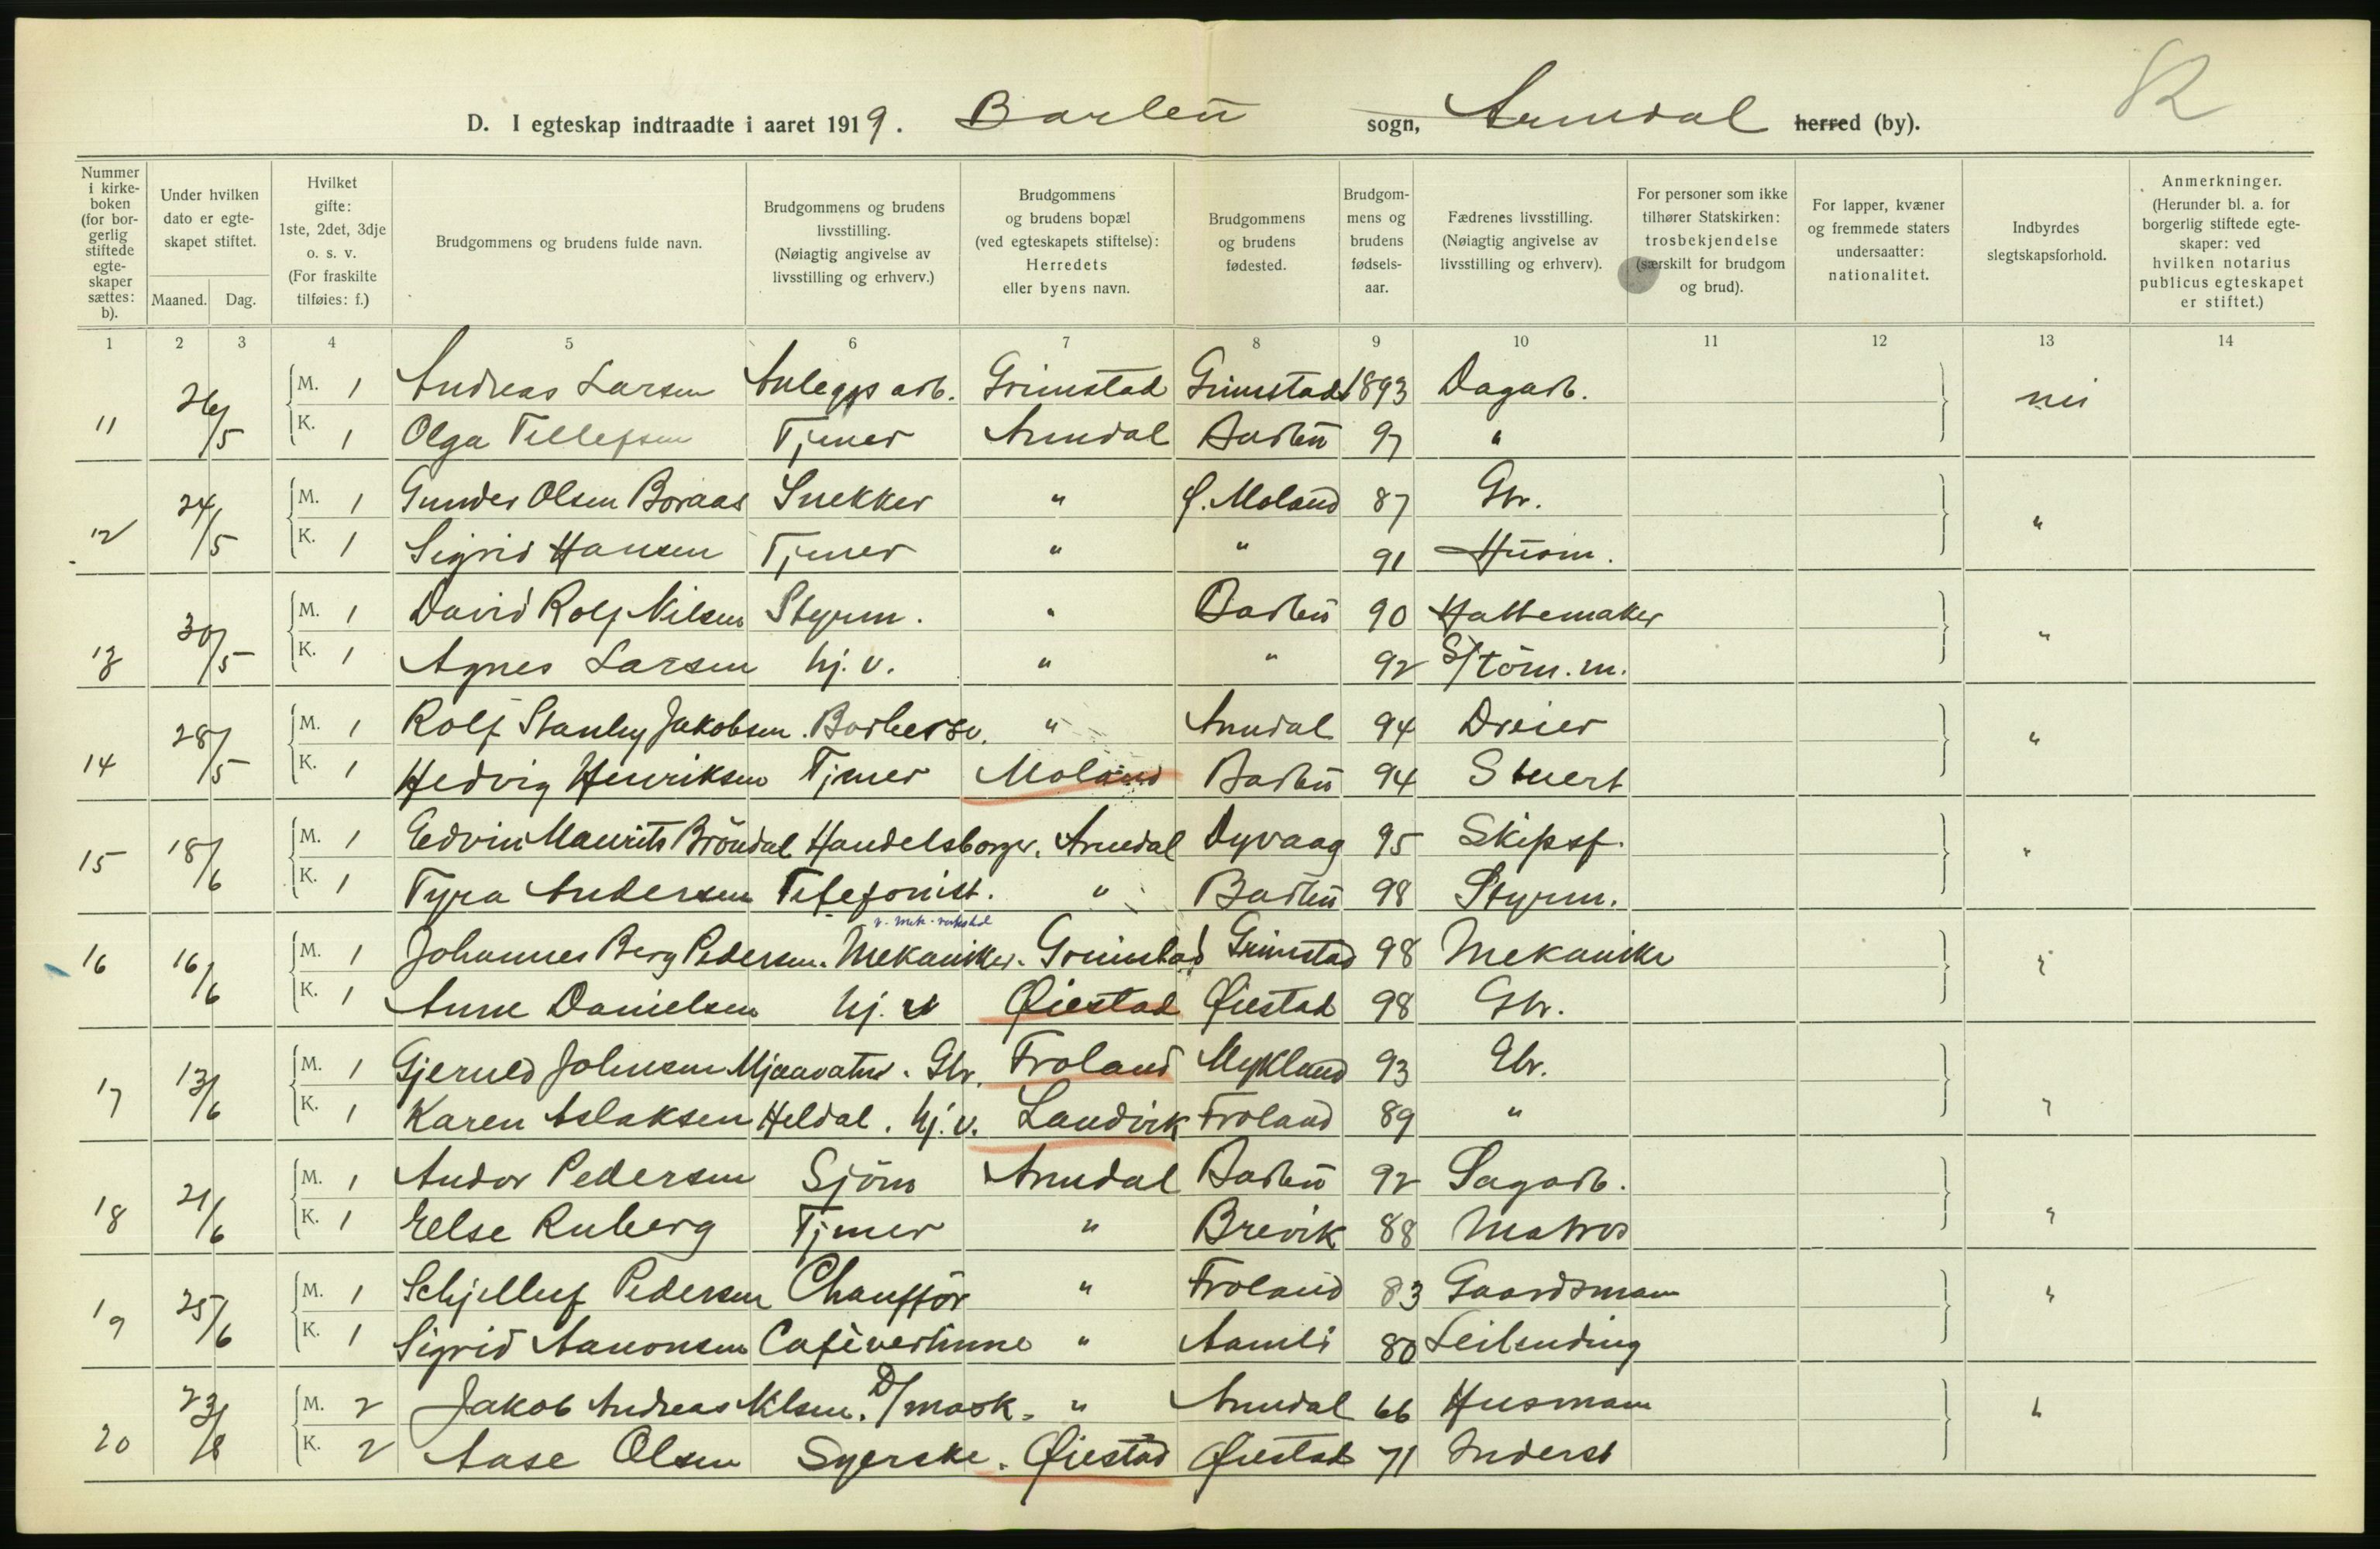 82
D. I egteskap indtraadte i aaret 1919. Barbu sogn, Arendal herred (by).
Nummer i kirke-boken (for bor-gerlig stiftede egte-skaper sættes: b).
Under hvilken dato er egte-skapet stiftet.
Maaned. Dag.
Hvilket gifte: 1ste, 2det, 3dje o. s. v. (For fraskilte tilføies: f.)
Brudgommens og brudens fulde navn.
Brudgommens og brudens livsstilling. (Nøiagtig angivelse av livsstilling og erhverv.)
Brudgommens og brudens bopæl (ved egteskapets stiftelse): Herredets eller byens navn.
Brudgommens og brudens fødested.
Brudgom-mens og brudens fødsels-aar.
Fædrenes livsstilling. (Nøiagtig angivelse av livsstilling og erhverv).
For personer som ikke tilhører Statskirken: trosbekjendelse (særskilt for brudgom og brud).
For lapper, kvæner og fremmede staters undersaatter: nationalitet.
Indbyrdes slegtskapsforhold.
Anmerkninger. (Herunder bl. a. for borgerlig stiftede egte-skaper: ved hvilken notarius publicus egteskapet er stiftet.)
1 2 3 4 5 6 7 8 9 10 11 12 13 14
11 26/5 M. 1 Andreas Larsen Anleggs arb. Grimstad Grimstad 1893 Dagarb. nei
K. 1 Olga Tellefsen Tjener Arendal Barbu 97 "
12 24/5 M. 1 Gunder Olsen Boraas Snekker " Ø. Moland 87 Gbr. "
K. 1 Sigrid Hansen Tjener " " 91 Husm.
13 30/5 M. 1 David Rolf Nilsen Styrm. " Barbu 90 Hattemaker "
K. 1 Agnes Larsen hj. v. " " 92 S/tøm. m.
14 28/5 M. 1 Rolf Stanley Jakobsen. Barbersv. " Arendal 94 Dreier "
K. 1 Hedvig Henriksen Tjener Moland Barbu 94 Stuert
15 18/6 M. 1 Edvin Maurits Bröndal Handelsborger. Arendal Dyvaag 95 Skipsf. "
K. 1 Tyra Andersen Telefonist. " Barbu 98 Styrm.
v. mek. verksted
16 16/6 M. 1 Johannes Berg Pedersen. Mekaniker. Grimstad Grimstad 98 Mekaniker "
K. 1 Anne Danielsen hj. v Øiestad Øiestad 98 Gbr.
17 13/6 M. 1 Gjeruld Johnsen Mjaavatn. Gbr. Froland Mykland 93 Gbr.
K. 1 Karen Aslaksen Heldal. hj. v. Landvik Froland 89 " "
18 21/6 M. 1 Andor Pedersen Sjöm Arendal Barbu 92 Sagarb.
K. 1 Else Ruberg Tjener " Brevik 88 Matros "
19 25/6 M. 1 Schjelluf Pedersen Chaufför " Froland 83 Gaardsmann "
K. 1 Sigrid Aanonsen Cafévertinne " Aamli 80 Leilending
20 23/8 M. 2 Jakob Andreas Nilsen. D/mask. " Arendal 66 Husmann "
K. 2 Aase Olsen Syerske. Øiestad Øiestad 71 Inderst